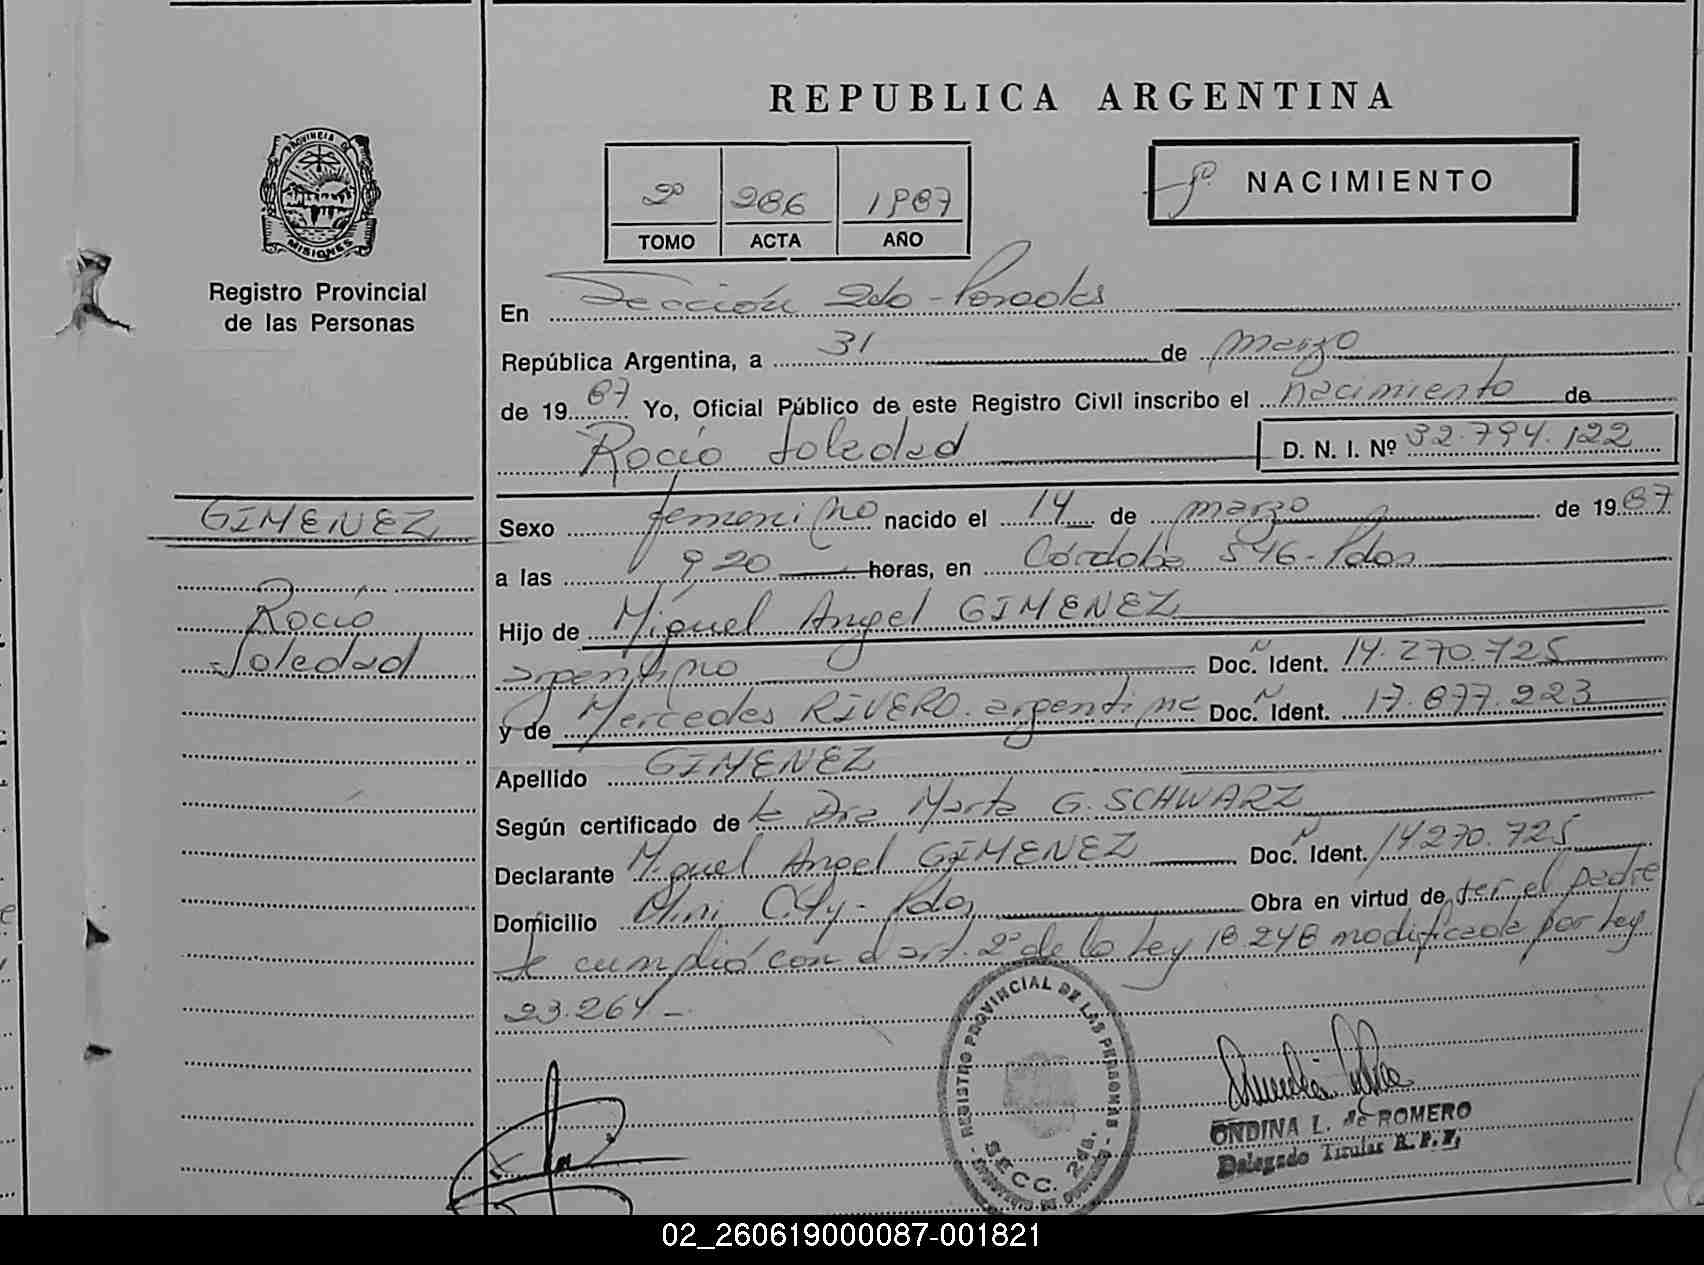 REPUBLICA ARGENTINA
PROVINCIA DE
MISIONES
Registro Provincial
de las Personas
2º 286 1987
TOMO ACTA AÑO
NACIMIENTO
En Sección 2da - Posadas
República Argentina, a 31 de marzo
de 1987 Yo, Oficial Público de este Registro Civil inscribo el nacimiento de
Rocío Soledad D. N. I. Nº 32.794.122
GIMENEZ
Rocío
Soledad
Sexo femenino nacido el 14 de marzo de 1987
a las 9,20 horas, en Córdoba 546 - Pdas
Hijo de Miguel Angel GIMENEZ
argentino Doc. Ident. 14.270.725
y de Mercedes RIVERO. argentina Doc. Ident. 17.877.223
Apellido GIMENEZ
Según certificado de la Dra Marta G. SCHWARZ
Declarante Miguel Angel GIMENEZ Doc. Ident. 14270.725
Domicilio Mini City - Pdas Obra en virtud de ser el padre
Se cumplió con el art. 2º de la ley 18248 modificada por ley
23.264 -
REGISTRO PROVINCIAL DE LAS PERSONAS
SECC. 2da.
ONDINA L. de ROMERO
Delegado Titular R.P.P.
02_260619000087-001821